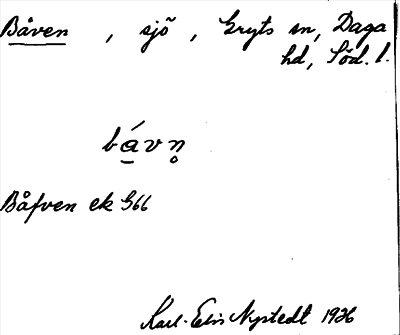 Båven , sjö , Gryts sn, Daga
hd, Söd. l.
bá̱vn̥
Båfven ek G66
Karl-Elis Nystedt 1936